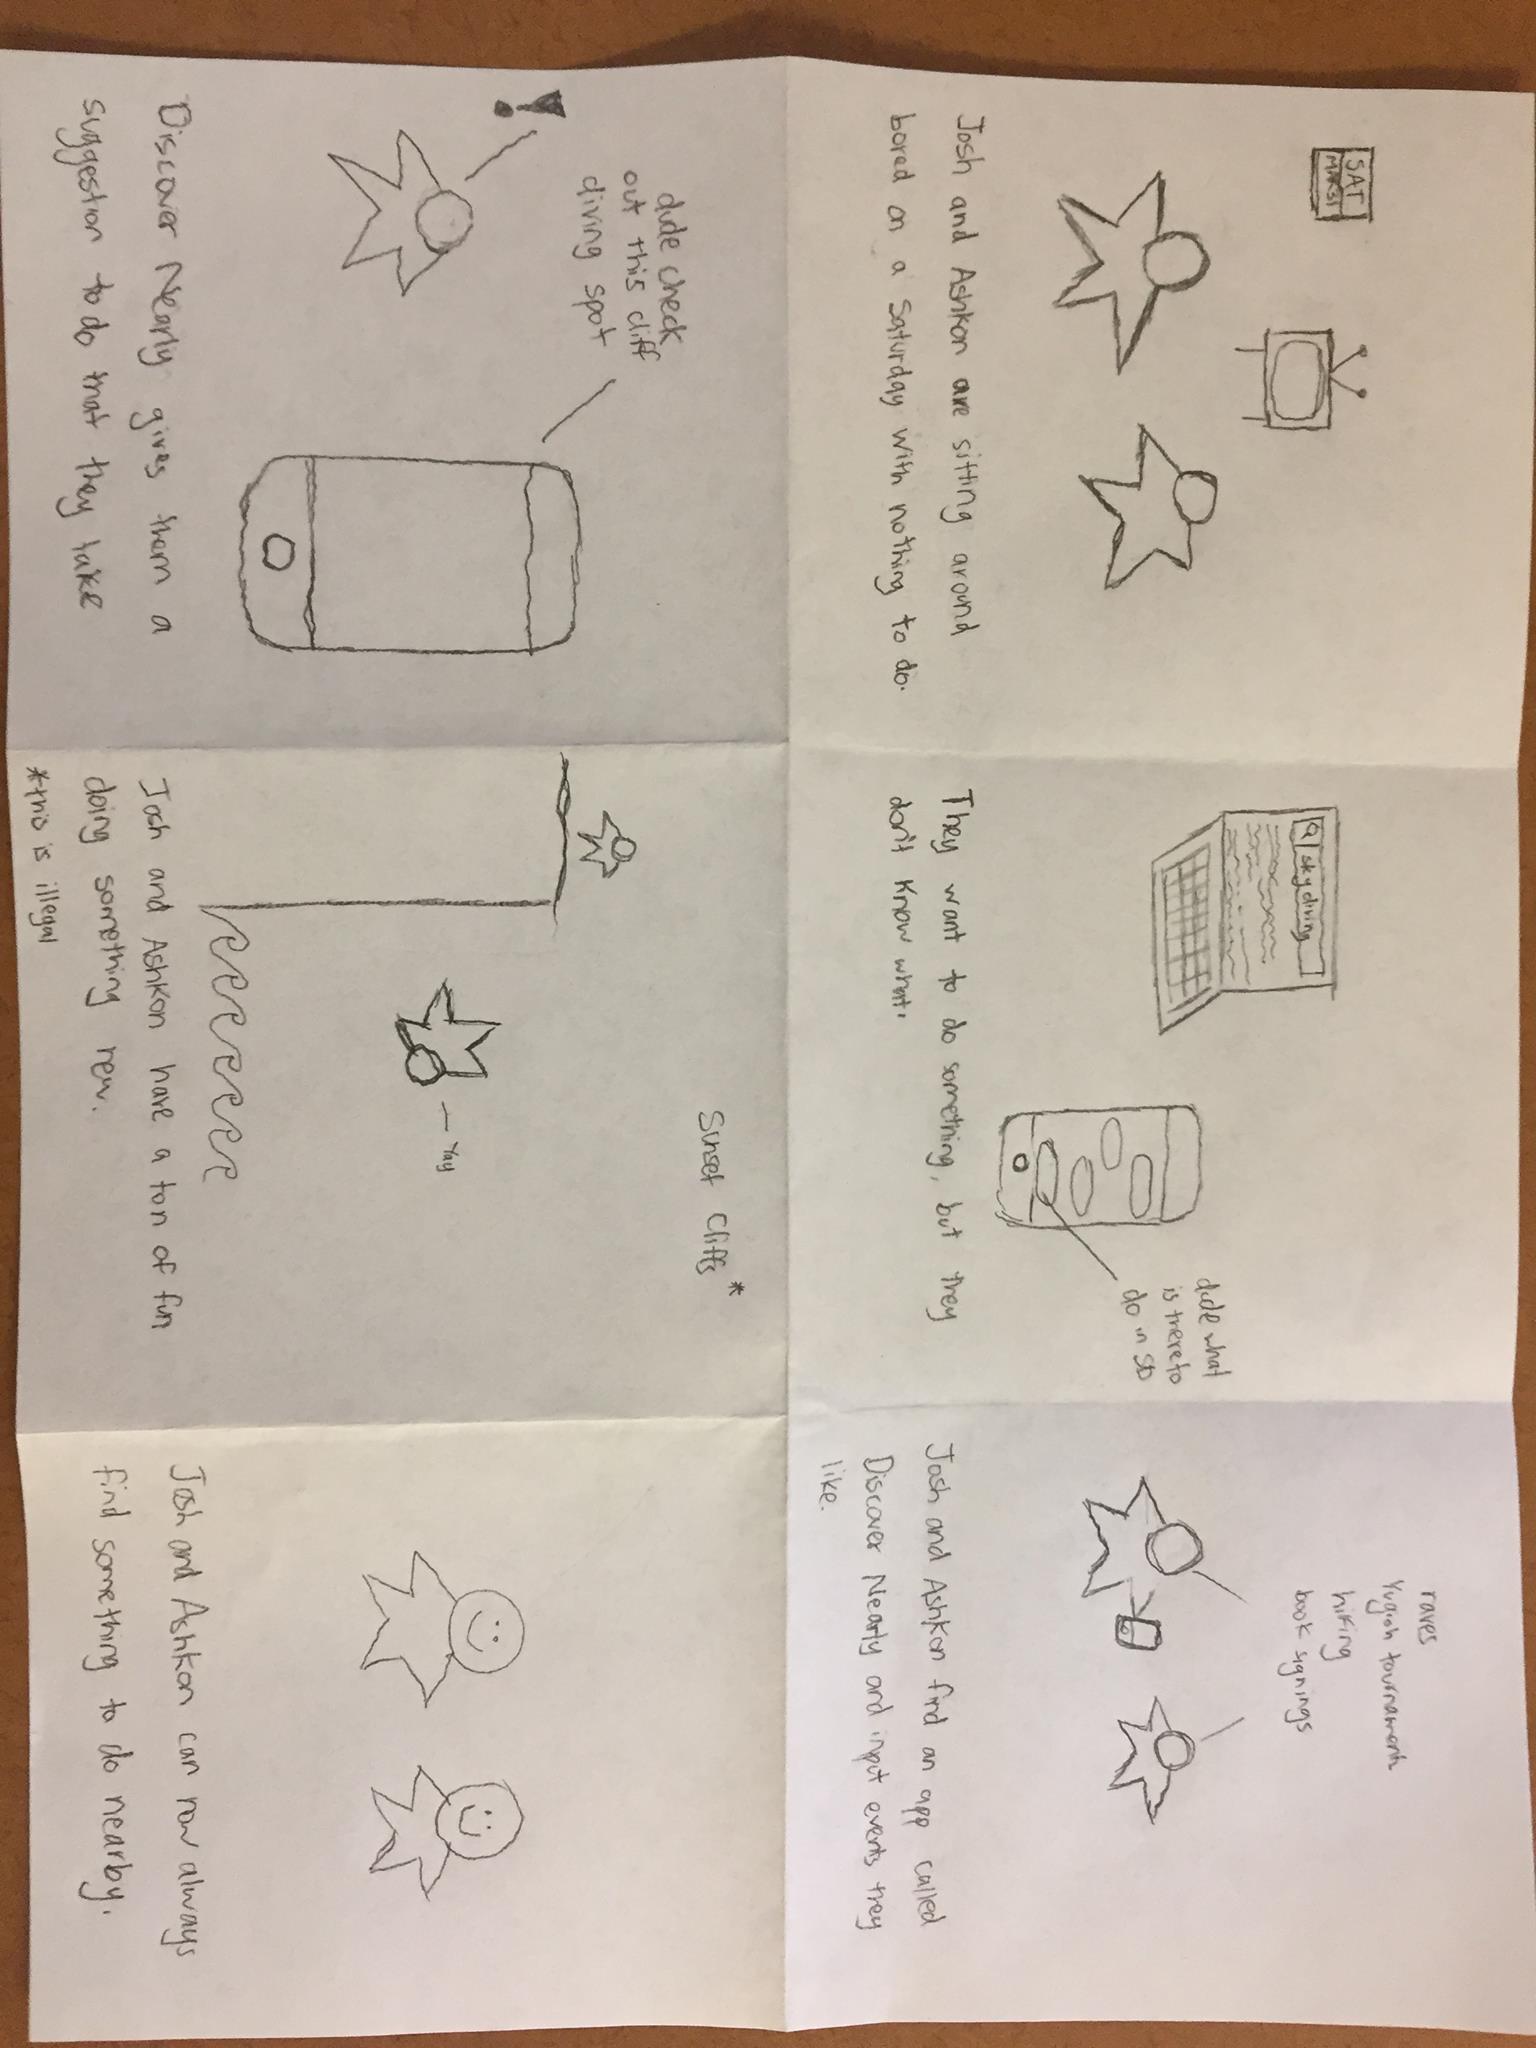 SAT
MAR 31
Josh and Ashkon are sitting around
bored on a Saturday with nothing to do.
skydiving
dude what
is there to
do in SD
They want to do something, but they
don't know what.
raves
Yugioh tournaments
hiking
book signings
Josh and Ashkon find an app called
Discover Nearly and input events they
like.
!
dude check
out this cliff
diving spot
Discover Nearly gives them a
suggestion to do that they take
Sunset Cliffs *
- Yay
Josh and Ashkon have a ton of fun
doing something new.
*this is illegal
Josh and Ashkon can now always
find something to do nearby.